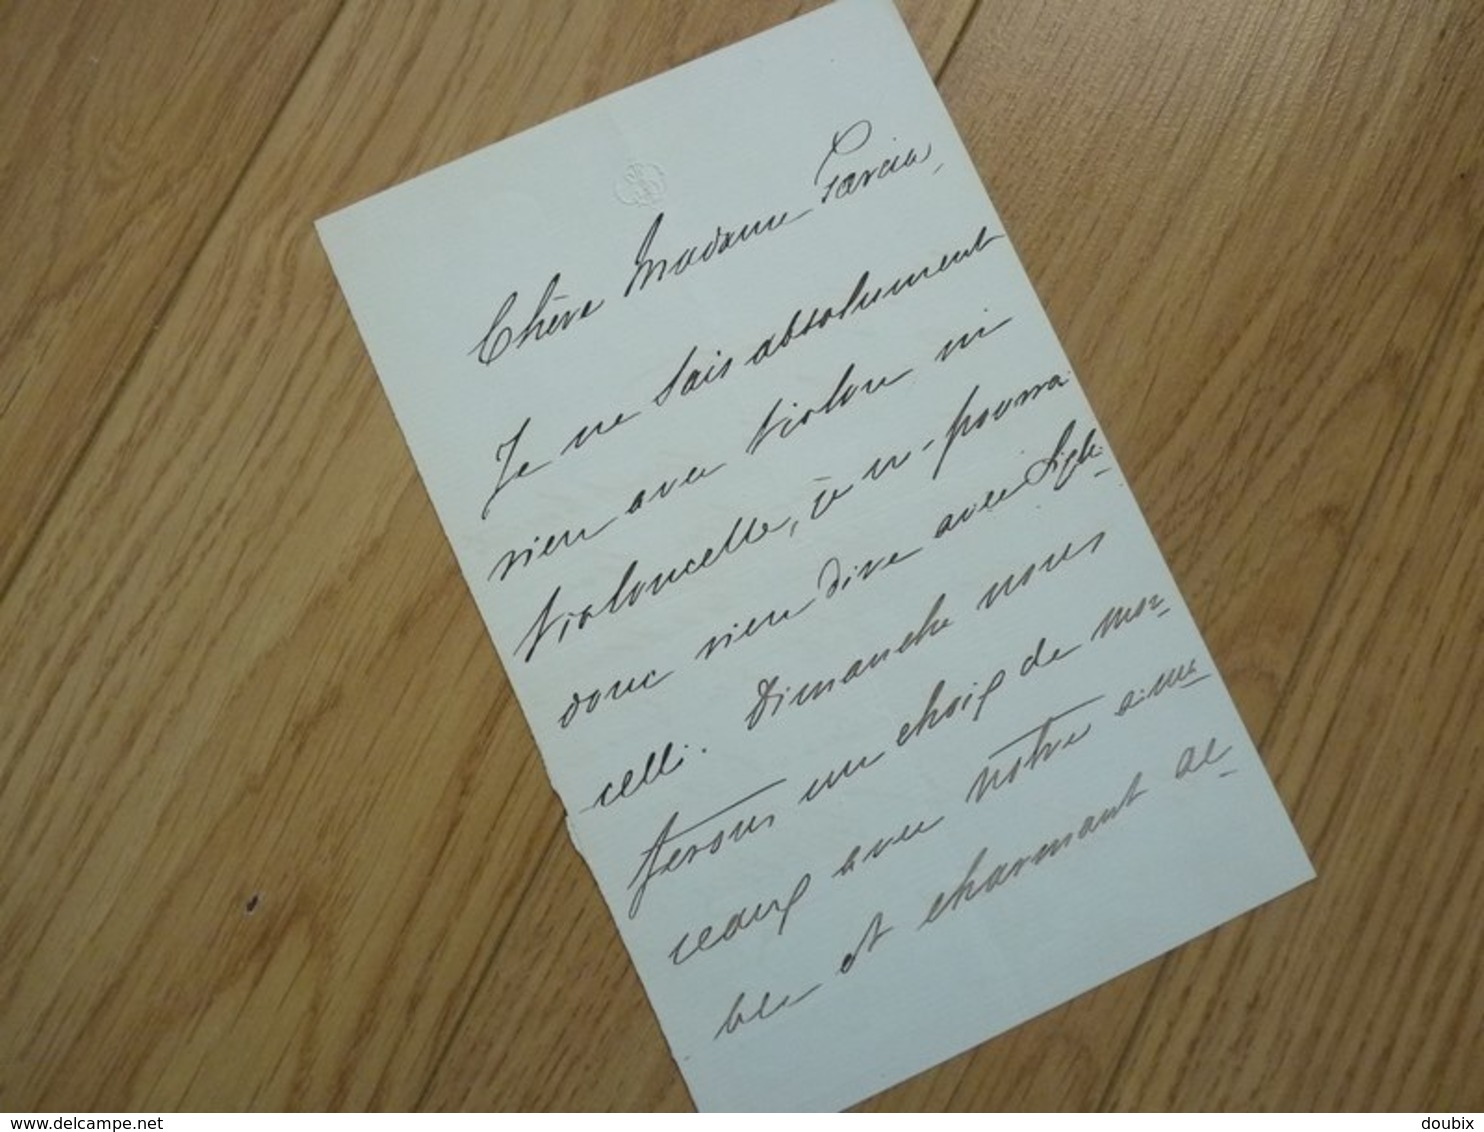 Chère Madame Garcia,
Je ne sais absolument
rien avec violon ni
violoncelle, je n-pourrai
donc rien dire avec Sighi-
celli. Dimanche nous
ferons un choix de mor-
ceaux avec notre aima-
ble et charmant ac-
© delcampe.net
doubix